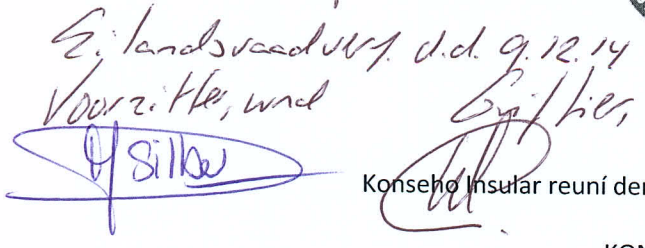 Eilandsraadverg. d.d. 9.12.14
Voorzitter, wnd Griffier,
Silber
Konseho Insular reuní der
KON